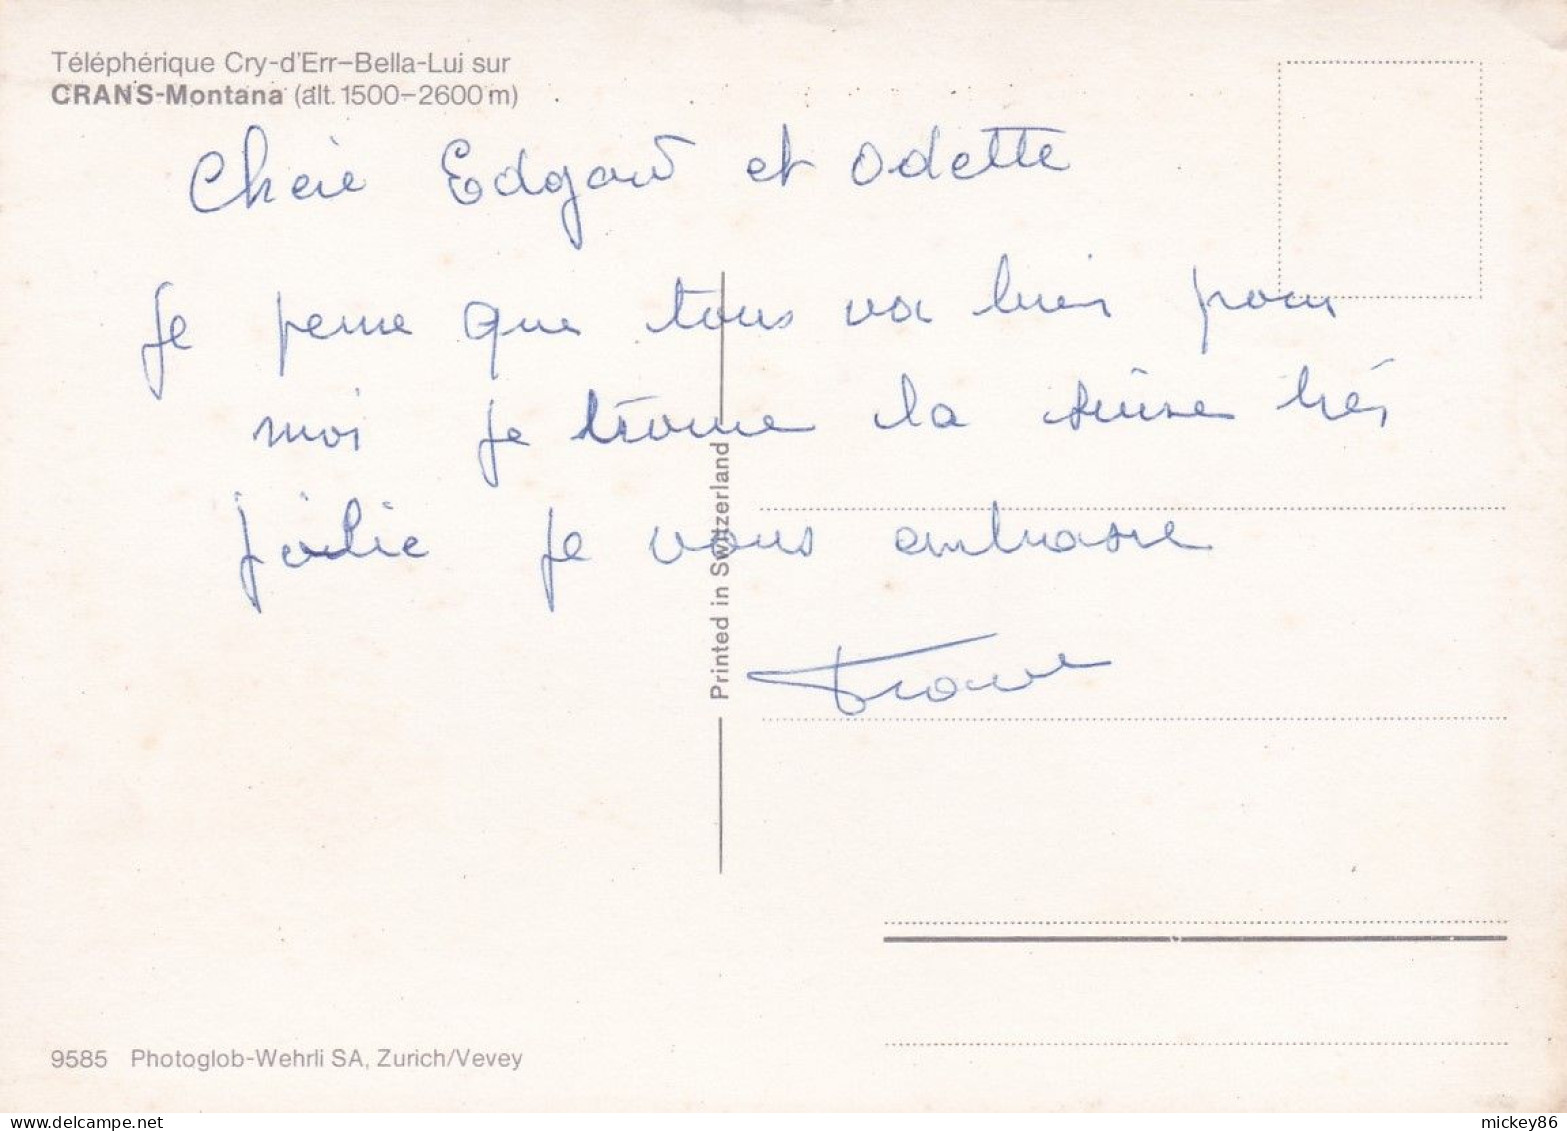 Téléphérique Cry-d'Err–Bella-Lui sur
CRANS-Montana (alt. 1500–2600 m)
Cheie Edgard et Odette
Je pense que tous va bien pour
moi je trouve la suisse très
jolie je vous embrasse
Printed in Switzerland
9585 Photoglob-Wehrli SA, Zurich/Vevey
mickey86